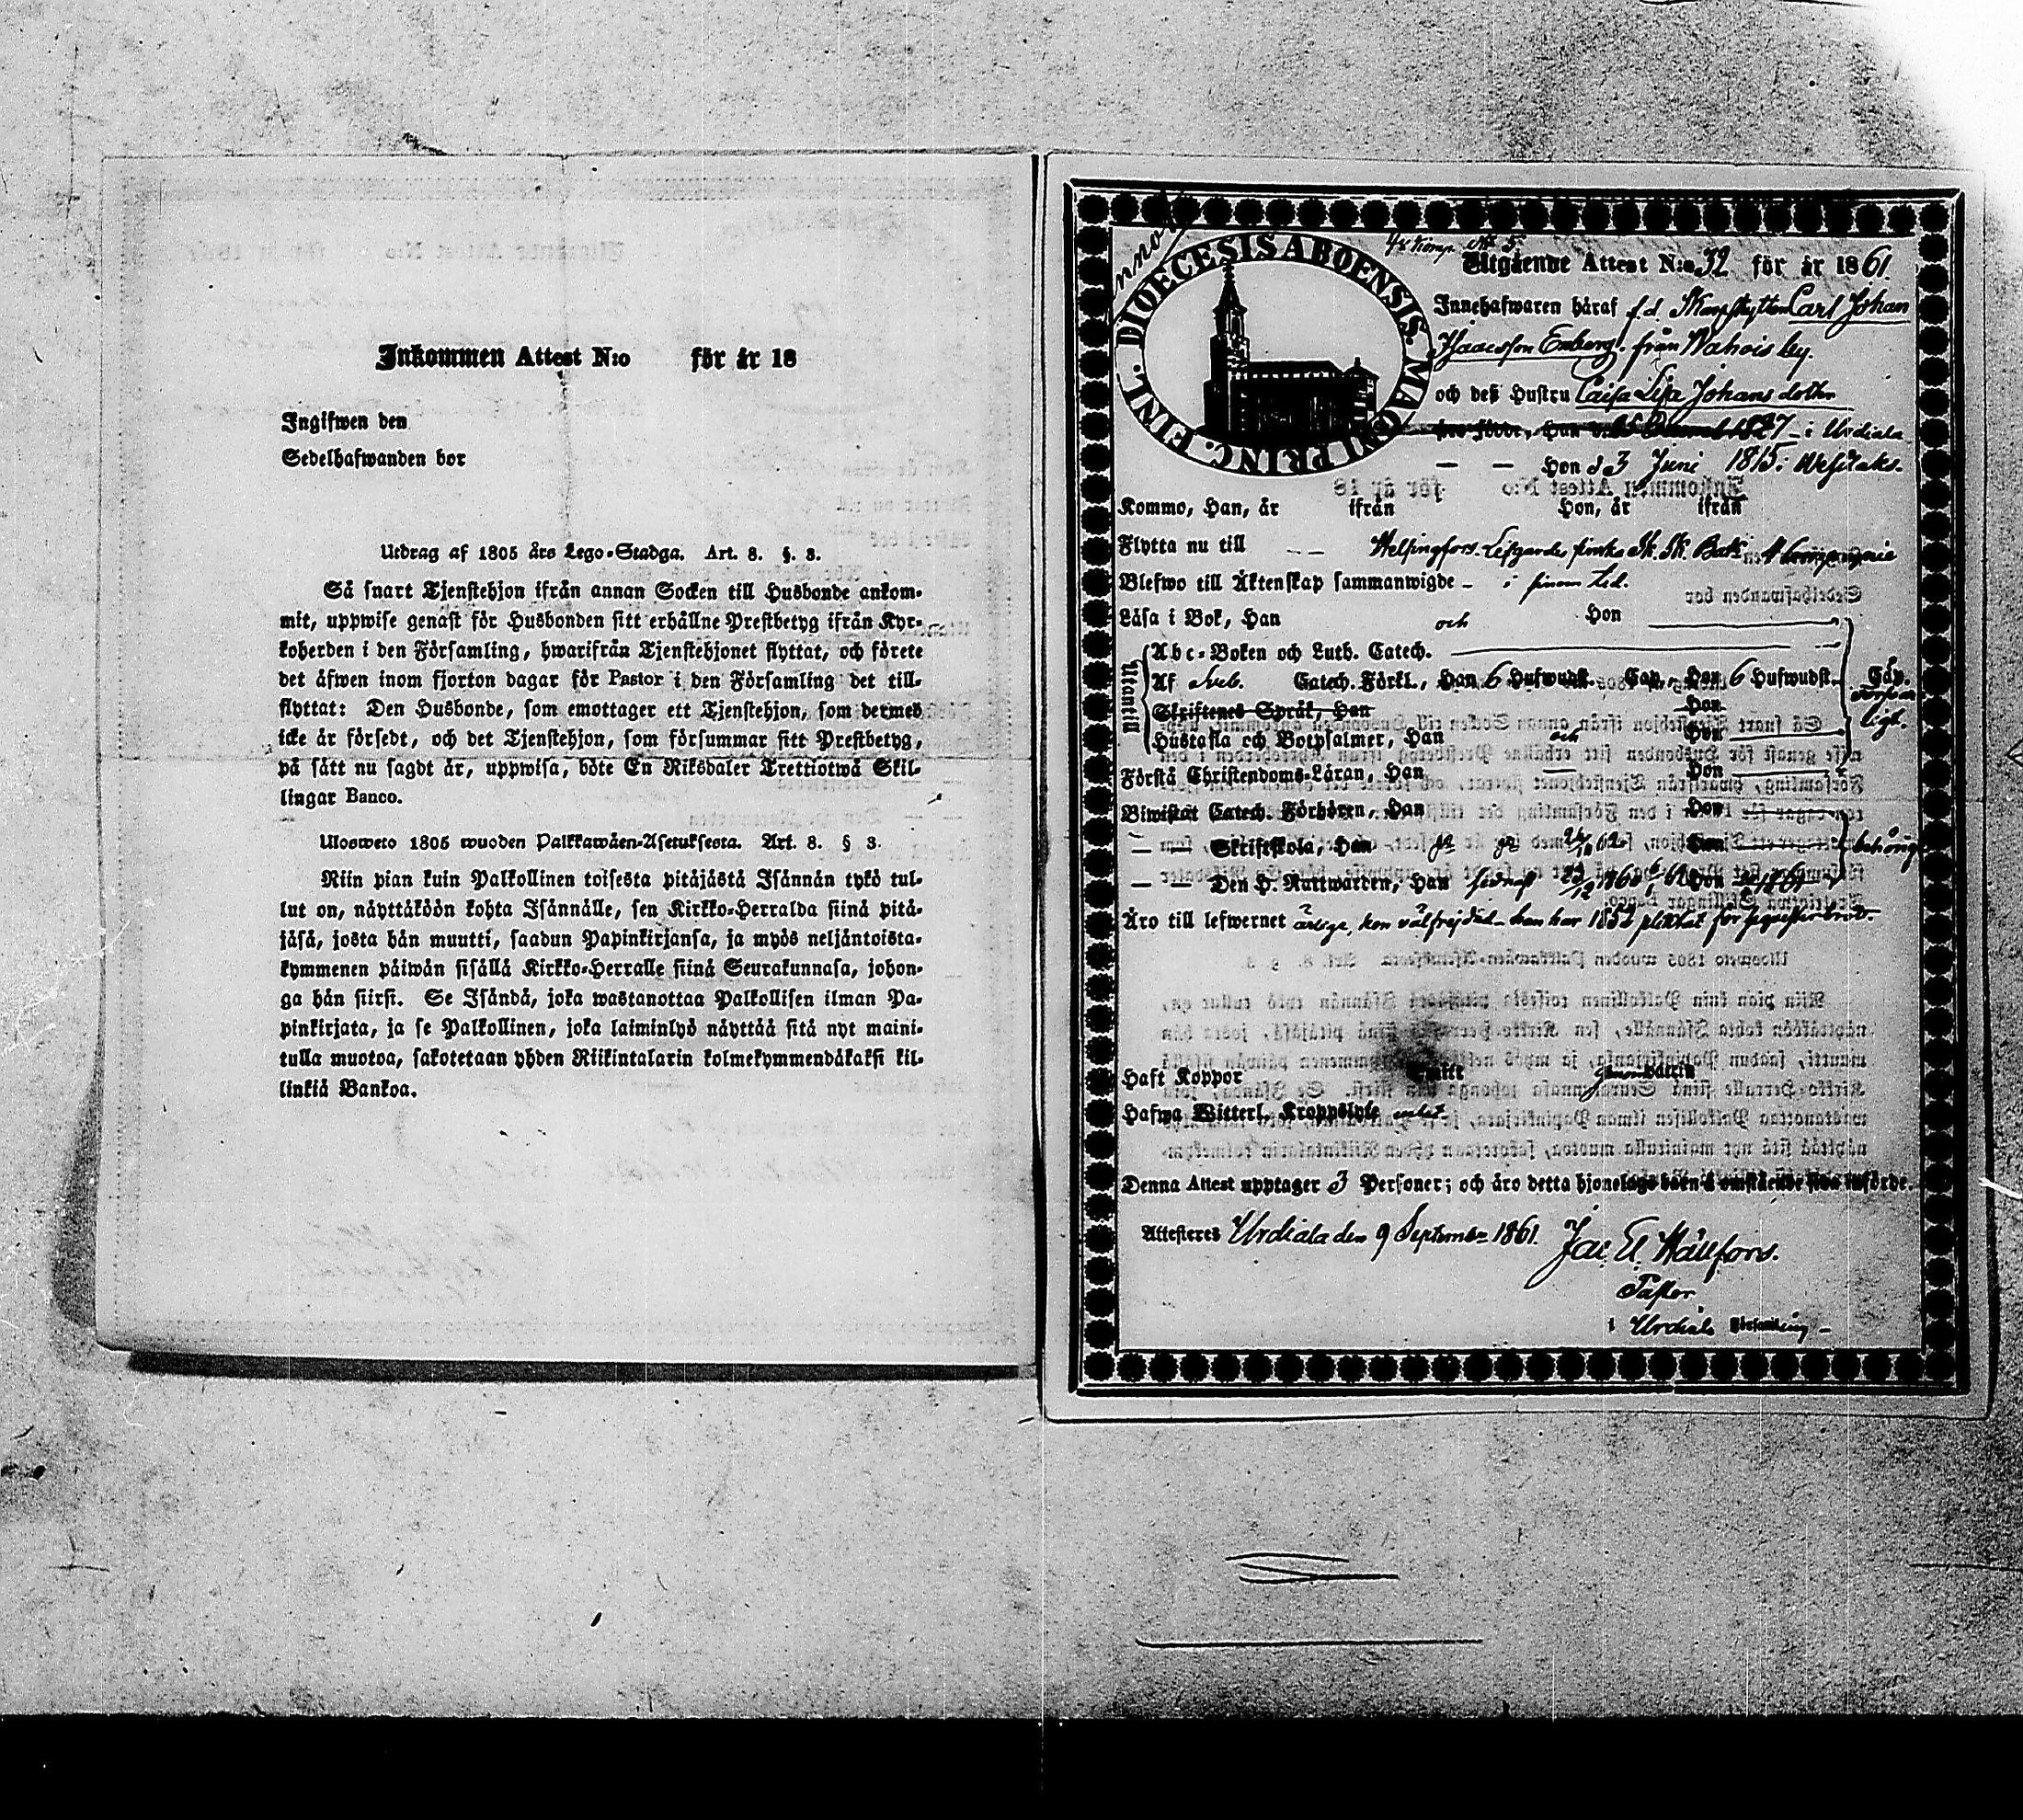 Inkommen Attest N:o för år 18
Ingifwen den
Sedelhafwanden bor
Utdrag af 1805 års Lego-Stadga. Art. 8. §. 3.
Så snart Tjenstehjon ifrån annan Socken till Husbonde ankom-
mit, uppwise genast för Husbonden sitt erhållne Prestbetyg ifrån Kyr-
koherden i den Församling, hwarifrån Tjenstehjonet flyttat, och förete
det äfwen inom fjorton dagar för Pastor i den Församling det till-
flyttat: Den Husbonde, som emottager ett Tjenstehjon, som dermed
icke är försedt, och det Tjenstehjon, som försummar sitt Prestbetyg,
på sätt nu sagdt är, uppwisa, böte En Riksdaler Trettiotwå Skil-
lingar Banco.
Ulosweto 1805 wuoden Palkkawäen-Asetuksesta. Art. 8. § 3.
Niin pian kuin Palkollinen toisesta pitäjästä Isännän tykö tul-
lut on, näyttäköön kohta Isännälle, sen Kirkko-Herralda siinä pitä-
jäsä, josta hän muutti, saadun Papinkirjansa, ja myös neljäntoista-
kymmenen päiwän sisällä Kirkko-Herralle siinä Seurakunnasa, johon-
ga hän siirst. Se Isändä, joka wastanottaa Palkollisen ilman Pa-
pinkirjata, ja se Palkollinen, joka laiminlyö näyttää sitä nyt maini-
tulla muotoa, sakotetaan yhden Riikintalarin kolmekymmendäkaksi kil-
linkiä Bankoa.
DIOECESIS ABOENSIS. MAGNI PRINC. FINL.
Utgående Attest N:o 32 för år 1861
Innehafwaren häraf f.d. Skarpskytten Carl Johan
Isaacsson Enberg, från Wahois by.
och deß Hustru Caisa Lisa Johans dotter
äro födde, Han 1827 i Urdiala
— — Hon d 3 Juni 1815 i
Kommo, Han, år ifrån Hon, år ifrån
Flytta nu till — — Helsingfors Lifgardes finska Sk. Sk. Bat.
Blefwo till Äktenskap sammanwigde – i sinom tid.
Läsa i Bok, Han och Hon
Utantill
Abc-Boken och Luth. Catech.
Af Sveb. Catech. Förkl., Han 6 Hufwudst. Cap., Hon 6 Hufwudst.
Skriftenes Språk, Han Hon
Hustafla och Botpsalmer, Han och Hon
Förstå Christendoms-Läran, Han — Hon
Biwistat Catech. Förhören, Han Hon
— — Skriftskola, Han Hon behörig
— — Den H. Nattwarden, Han sednast Hon
Äro till lefwernet ärlige, hon välfrejdad – han har 1852 pliktat för
Haft Koppor
Hafwa Witterl. Kroppslyte
Denna Attest upptager 3 Personer; och äro detta hjonelags barn å omstående sida införde.
Attesteres Urdiala den 9 September 1861.
Pastor
i Urdiala Församling